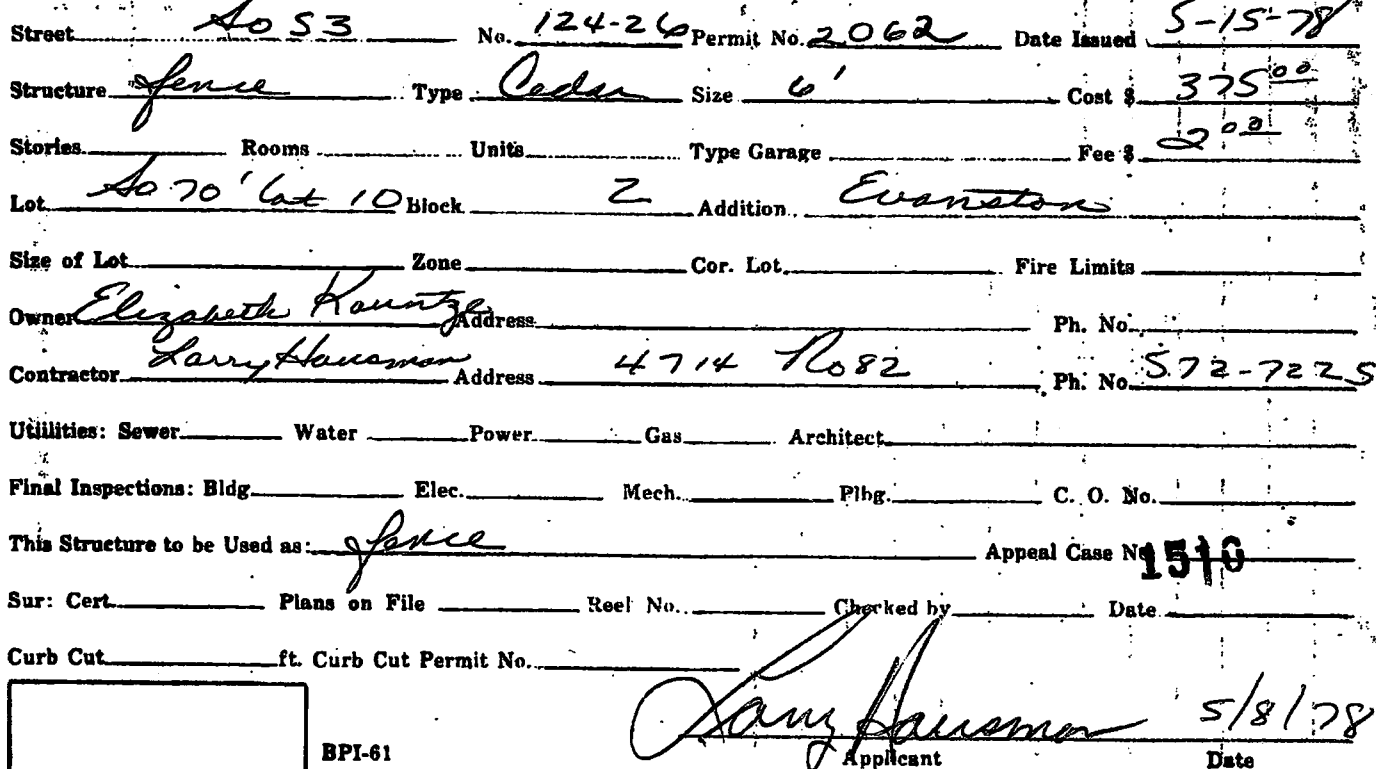 Street So 53 No. 124-26 Permit No. 2062 Date Issued 5-15-78
Structure fence Type Cedar Size 6' Cost $ 375 00
Stories Rooms Units Type Garage Fee $ 2 00
Lot So 70' Lot 10 Block 2 Addition Evanston
Size of Lot Zone Cor. Lot Fire Limits
Owner Elizabeth Kountze Address Ph. No.
Contractor Larry Hausman Address 4714 No 82 Ph. No. 572-7225
Utilities: Sewer Water Power Gas Architect
Final Inspections: Bldg. Elec. Mech. Plbg. C. O. No.
This Structure to be Used as: fence Appeal Case No 1510
Sur: Cert. Plans on File Reel No. Checked by Date
Curb Cut ft. Curb Cut Permit No.
Larry Hausman 5/8/78
BPI-61 Applicant Date